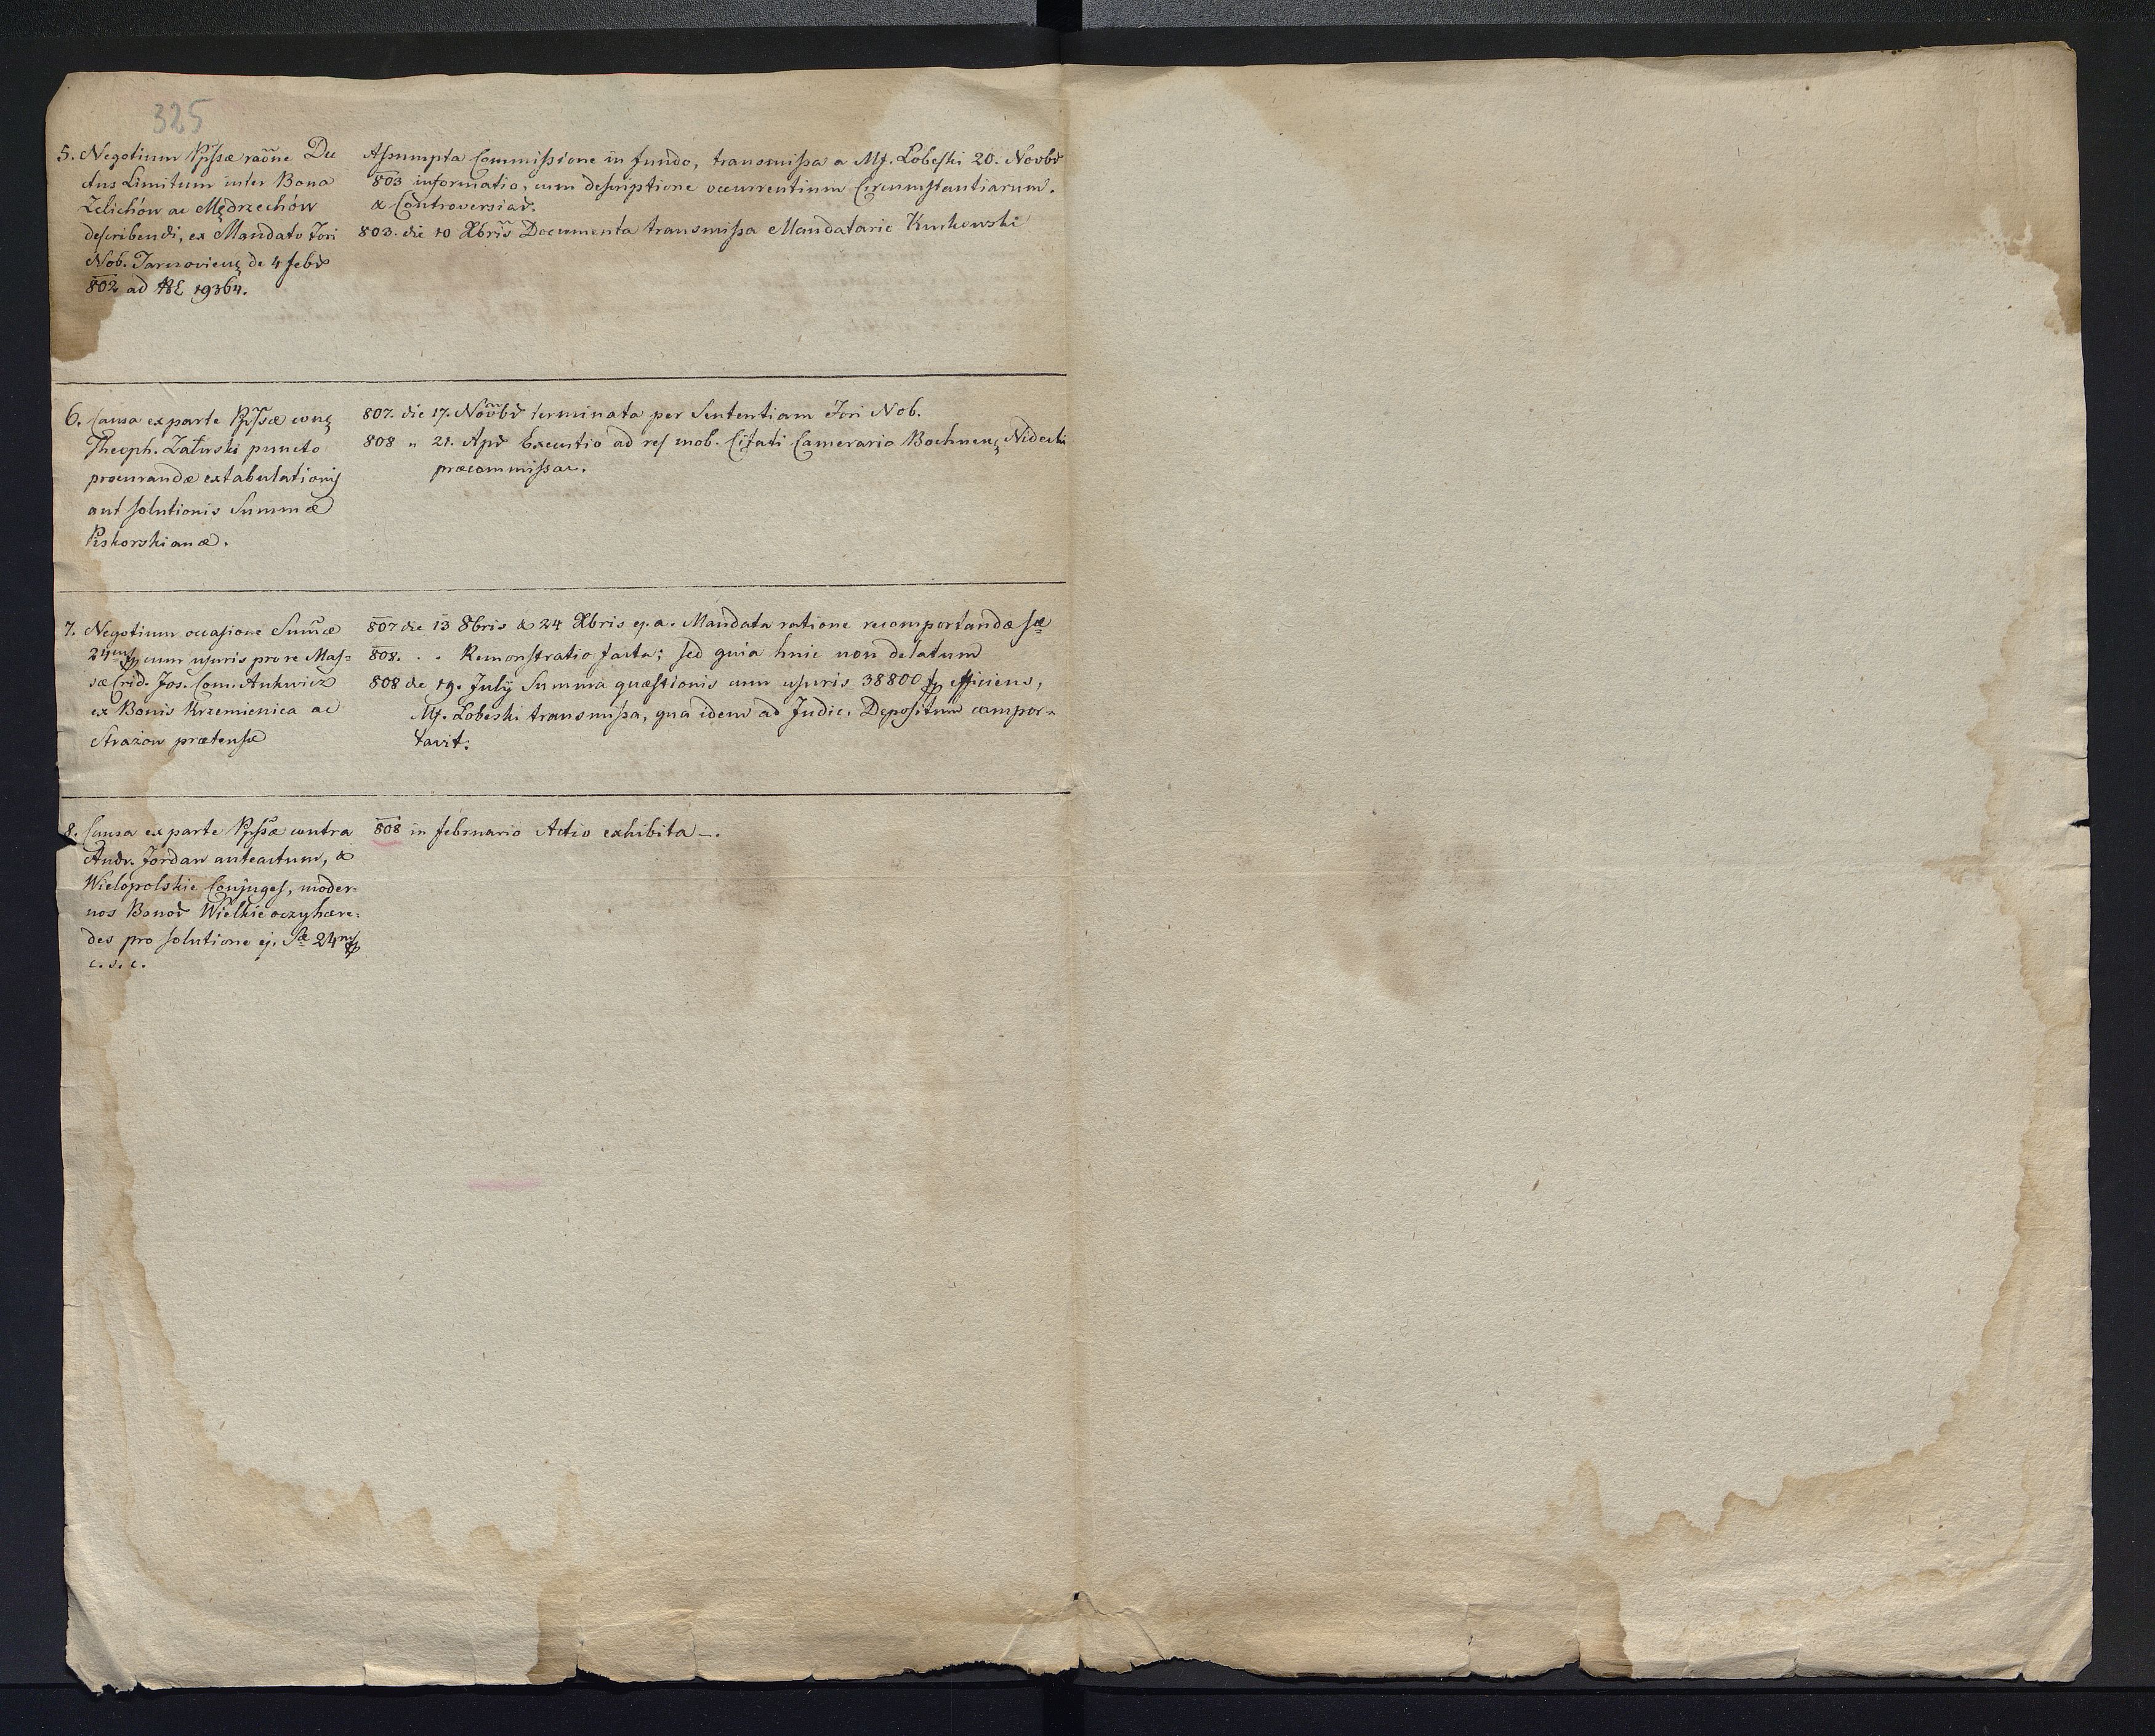 325
5. Negotium Ppssæ raõne Du
ctus Limitum inter Bona
Zelichów ac Mędrzechów
describendi, ex Mandato Fori
Nob. Tarnoviens de 4 feb̃r
802 ad 19364.
Assumpta Commissione in fundo, transmissa a Mf. Lobeski 20. Novbr
803 informatio, cum descriptione occurrentium Circumstantiarum.
& Controversiar.
803. die 10 Xbris Documenta transmissa Mandatario Kurkowski
6. Causa ex parte Ppssæ con
Theoph. Załuski puncto
procurandæ extabulationis
aut solutionis Summæ
Piskorskianæ.
807. die 17. Novbr terminata per Sententiam Fori Nob.
808 „ 21. Apr Executio ad res mob. Citati Camerario Bochnens Nidecki
præcommissa.
7. Negotium occasione Sum̃æ
24 cum usuris pro re Mas=
sæ Crid. Jos. Com. Ankwicz
ex Bonis Krzemienica ac
Strazow prætensæ
807 die 13 8bris & 24 Xbris ej. a. Mandata ratione recomportandæ sæ
808. . . Remonstratio facta; sed quia huic non delatum
808 die 19. July Summa quæstionis cum usuris 38800 efficiens,
Mf. Lobeski transmissa, qua idem ad Judic. Depositum compor-
tavit.
8. Causa ex parte Ppssæ contra
Andr. Jordan anteactum, &
Wielopolskie Conjuges, moder=
nos Bonor Wielkie oczy hære=
des pro solutione ej. Sæ 24
c. s. c.
808 in februario Actio exhibita —.